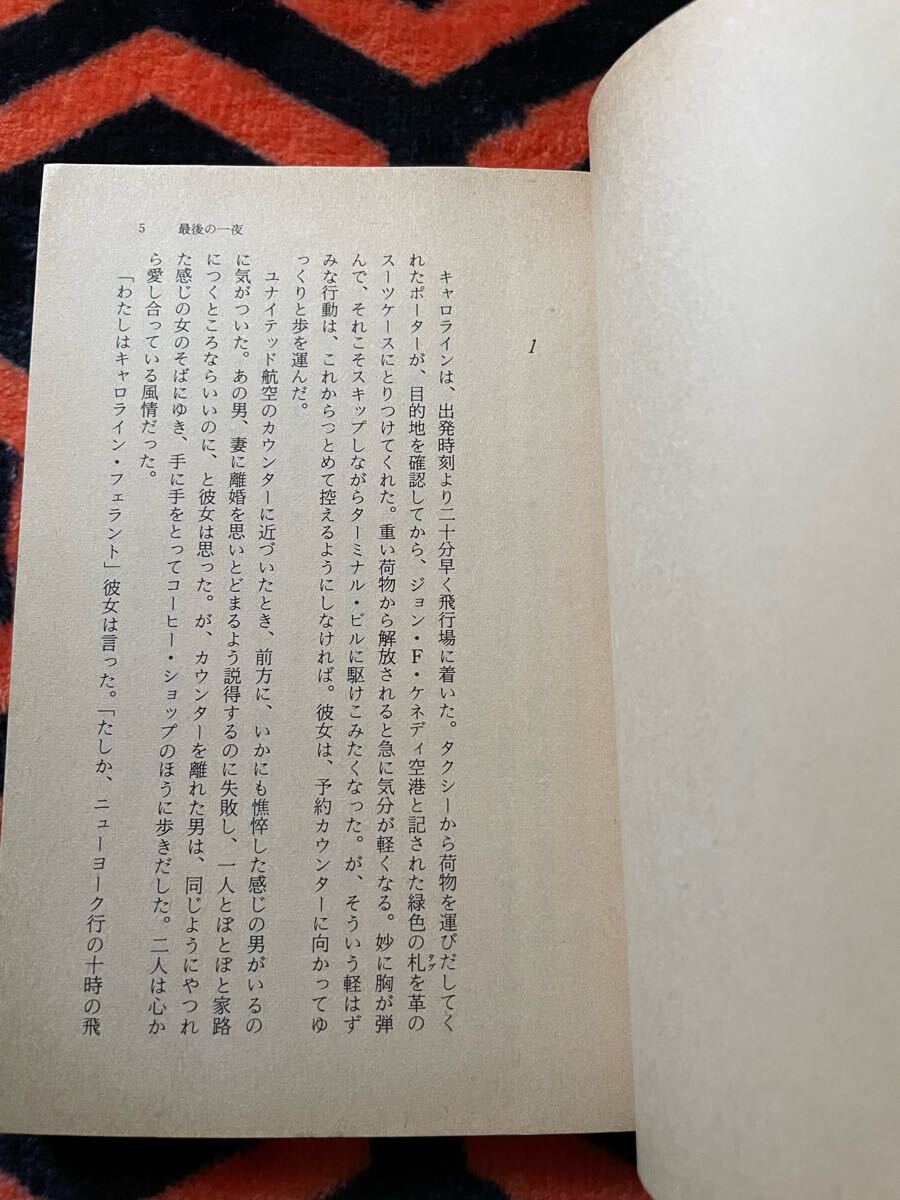 5　最後の一夜
1
キャロラインは、出発時刻より二十分早く飛行場に着いた。タクシーから荷物を運びだしてく
れたポーターが、目的地を確認してから、ジョン・F・ケネディ空港と記された緑色の札を革の
タグ
スーツケースにとりつけてくれた。重い荷物から解放されると急に気分が軽くなる。妙に胸が弾
んで、それこそスキップしながらターミナル・ビルに駆けこみたくなった。が、そういう軽はず
みな行動は、これからつとめて控えるようにしなければ。彼女は、予約カウンターに向かってゆ
っくりと歩を運んだ。
ユナイテッド航空のカウンターに近づいたとき、前方に、いかにも憔悴した感じの男がいるの
に気がついた。あの男、妻に離婚を思いとどまるよう説得するのに失敗し、一人とぼとぼと家路
につくところならいいのに、と彼女は思った。が、カウンターを離れた男は、同じようにやつれ
た感じの女のそばにゆき、手に手をとってコーヒー・ショップのほうに歩きだした。二人は心か
ら愛し合っている風情だった。
「わたしはキャロライン・フェラント」彼女は言った。「たしか、ニューヨーク行の十時の飛